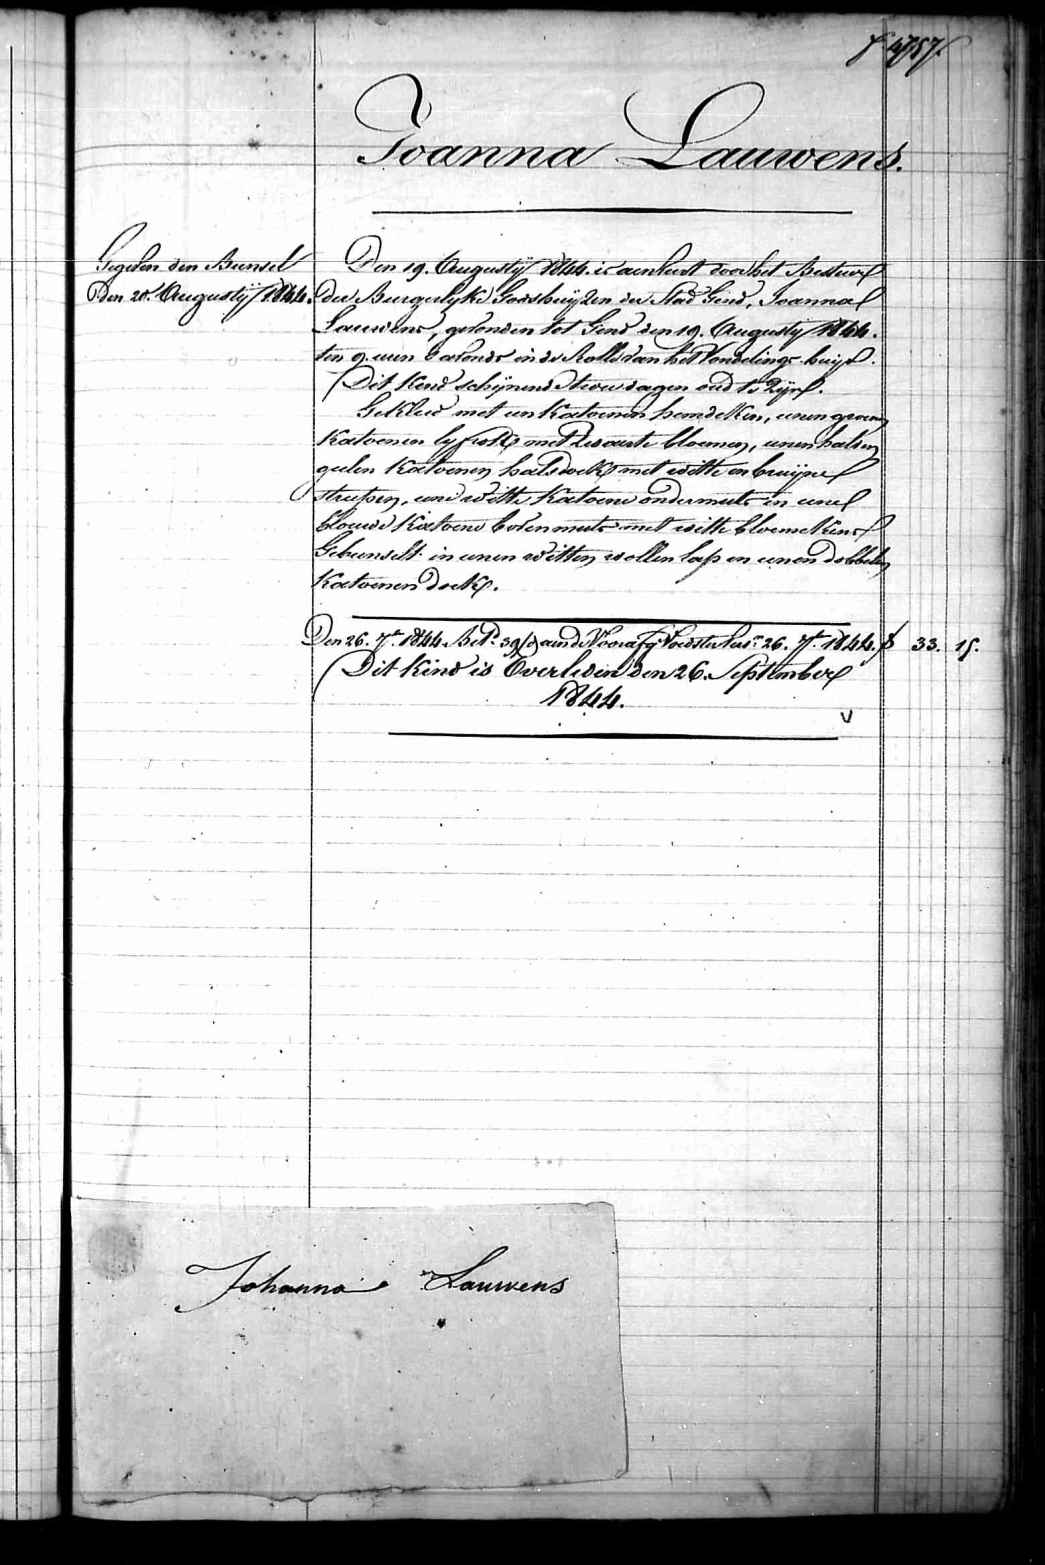 f 4757.
Joanna Lauwens.
Gegeven den Bunsel
Den 20. Augustij 1844.
Den 19. Augustij 1844. is aenhert door het Bestuer
der Burgerlyke Godshuijzen der Stad Gend, Joanna
Lauwens, gevonden tot Gend den 19. Augustij 1844.
ten 9. uren 's avonds in de Rolle van het Vondelings-huijs.
Dit Kind schijnende twee dagen oud te Zijn.
Gekleed met een Katoenen hemdeken, eenen groenen
Katoenen lyfrok met Zwarte bloemen, eenen halven
geelen Katoenen halsdoek met witte en bruijne
streepen, eene witte Katoene ondermuts en eene
blauwe Katoene bovenmuts met witte bloemekens
Gebunselt in eenen witten wollen lap en eenen dobbelen
Katoenen doek.
Den 26. 7r. 1844. Bet. 39 aen de Voorafg. Voedster 26. 7r. 1844. f 33. 15.
Dit Kind is Overleden den 26. September
1844.
v
Johanna Lauwens